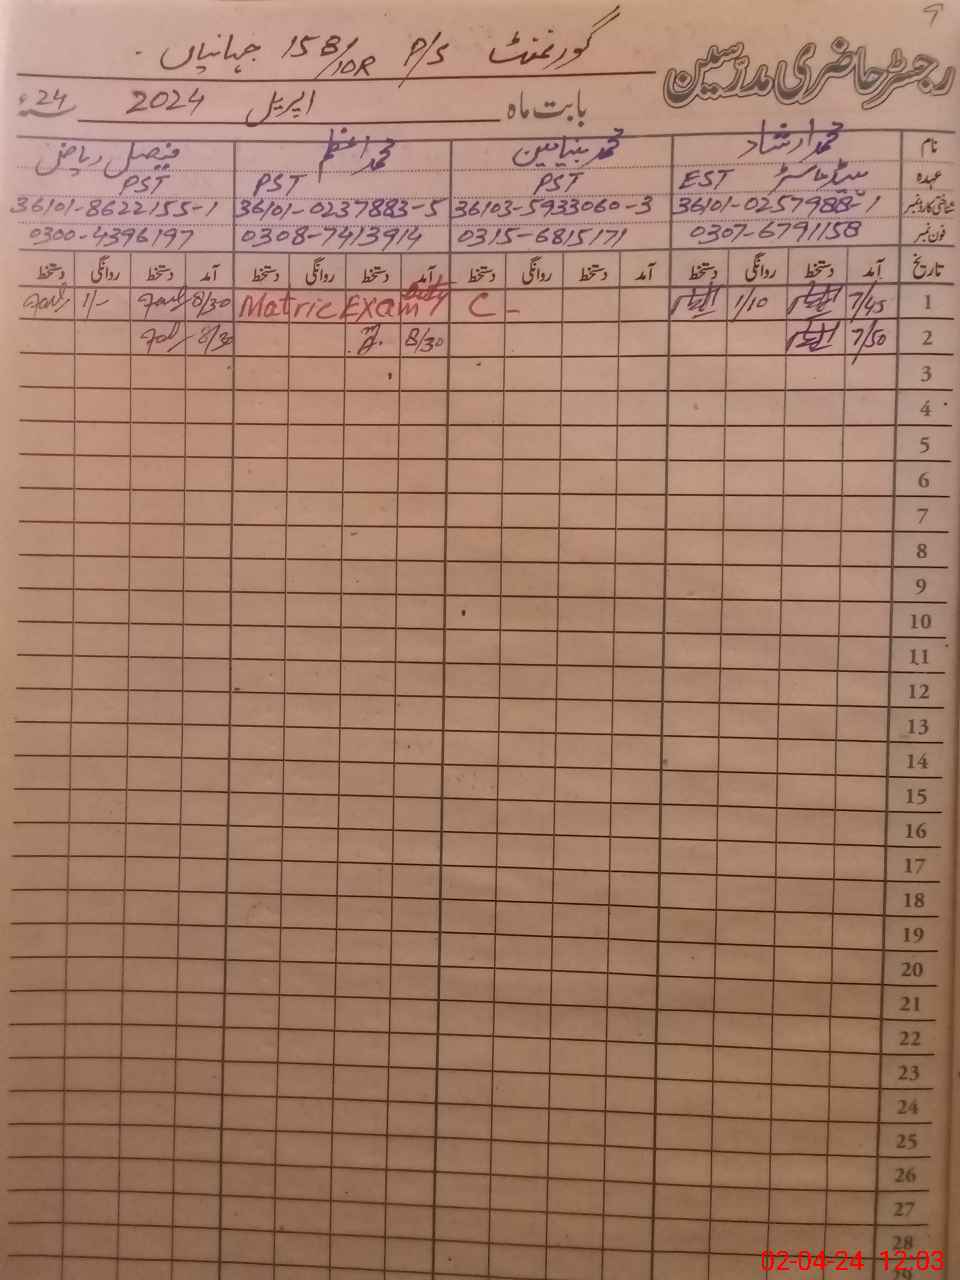 9
رجسٹر حاضری مدرسین
گورنمنٹ P/S 15B/10R جہانیاں۔
بابت ماہ اپریل 2024 24ء
نام محمد ارشاد محمد بنیامین محمد اعظم فیصل ریاض
عہدہ ہیڈ ماسٹر EST PST PST PST
شناختی کارڈ نمبر 36101-0257988-1 36103-5933060-3 36101-0237883-5 36101-8622155-1
فون نمبر 0307-6791158 0315-6815171 0308-7413914 0300-4396197
تاریخ آمد دستخط روانگی دستخط آمد دستخط روانگی دستخط آمد دستخط روانگی دستخط آمد دستخط روانگی دستخط
1 7/45 1/10 C - Matric Exam duty 8/30 1/-
2 7/50 8/30 8/30
3
4
5
6
7
8
9
10
11
12
13
14
15
16
17
18
19
20
21
22
23
24
25
26
27
28
29
02-04-24 12:03